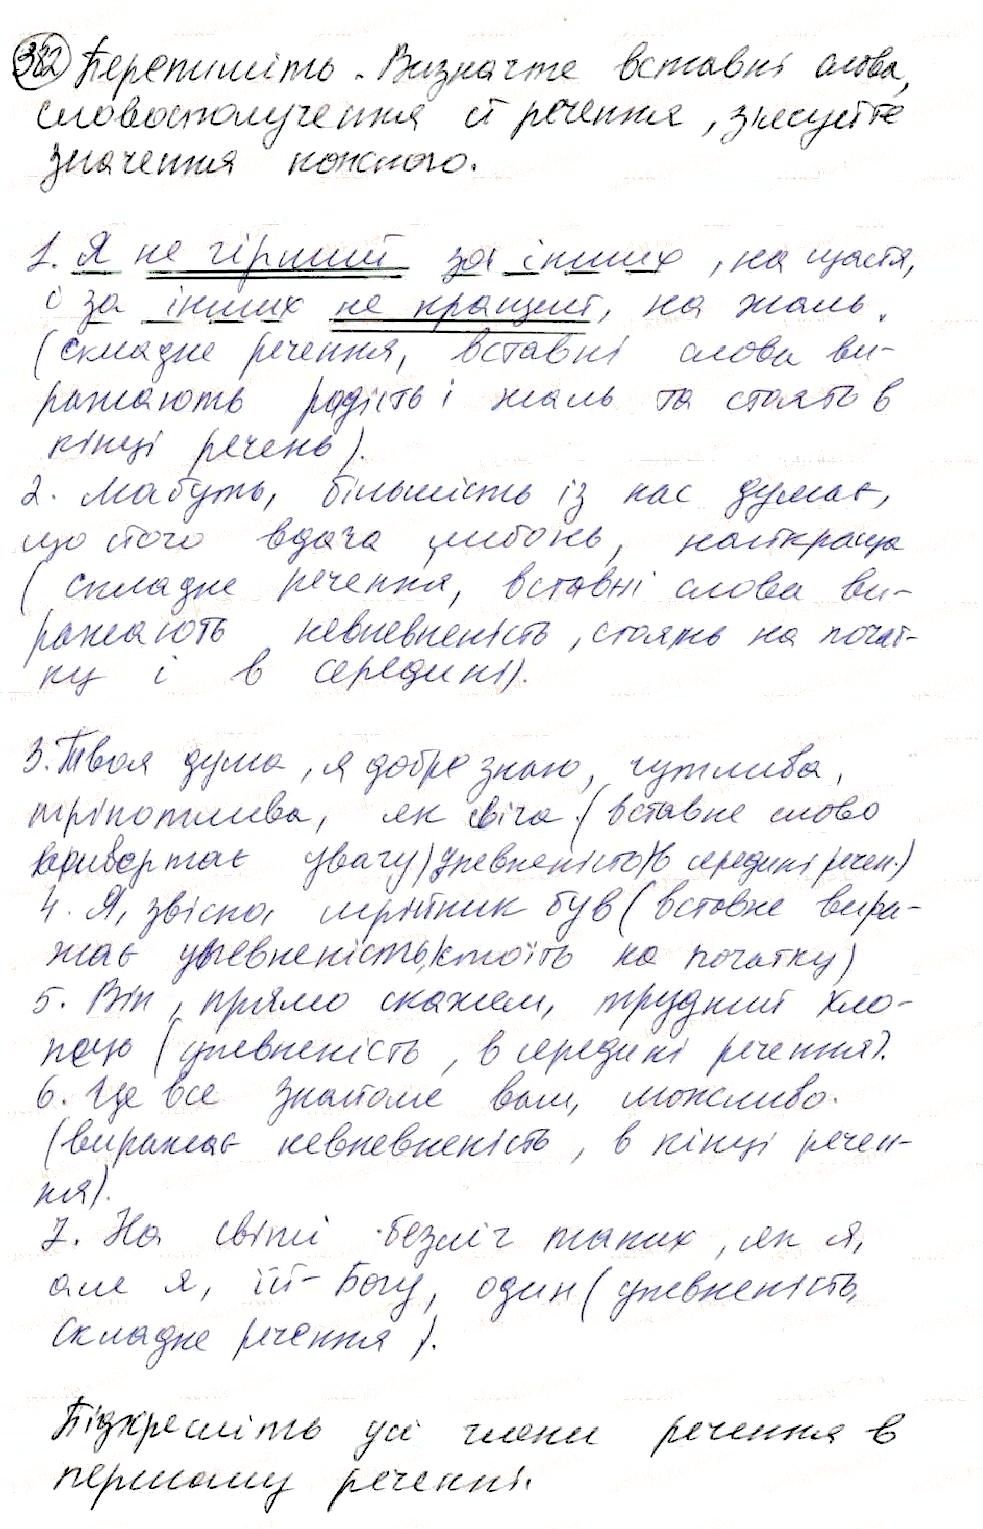 382 Перепишіть. Визначте вставні слова,
словосполучення й речення, з'ясуйте
значення кожного.
1. Я не гірший за інших, на щастя,
і за інших не кращий, на жаль.
(складне речення, вставні слова ви-
ражають радість і жаль та стоять в
кінці речень).
2. Мабуть, більшість із нас думає,
що його вдача, либонь, найкраща
(складне речення, вставні слова ви-
ражають невпевненість, стоять на почат-
ку і в середині).
3. Твоя душа, я добре знаю, чутлива,
тріпотлива, як свіча. (вставне слово
привертає увагу) упевненість) в середині речен.)
4. Я, звісно, мрійник був (вставне вира-
жає упевненість, стоїть на початку)
5. Він, прямо скажем, трудний хло-
пець (упевненість, в середині речення).
6. Це все знайоме вам, можливо.
(виражає невпевненість, в кінці речен-
ня).
7. На світі безліч таких, як я,
але я, їй-Богу, один (упевненість,
складне речення).
Підкресліть усі члени речення в
першому реченні.